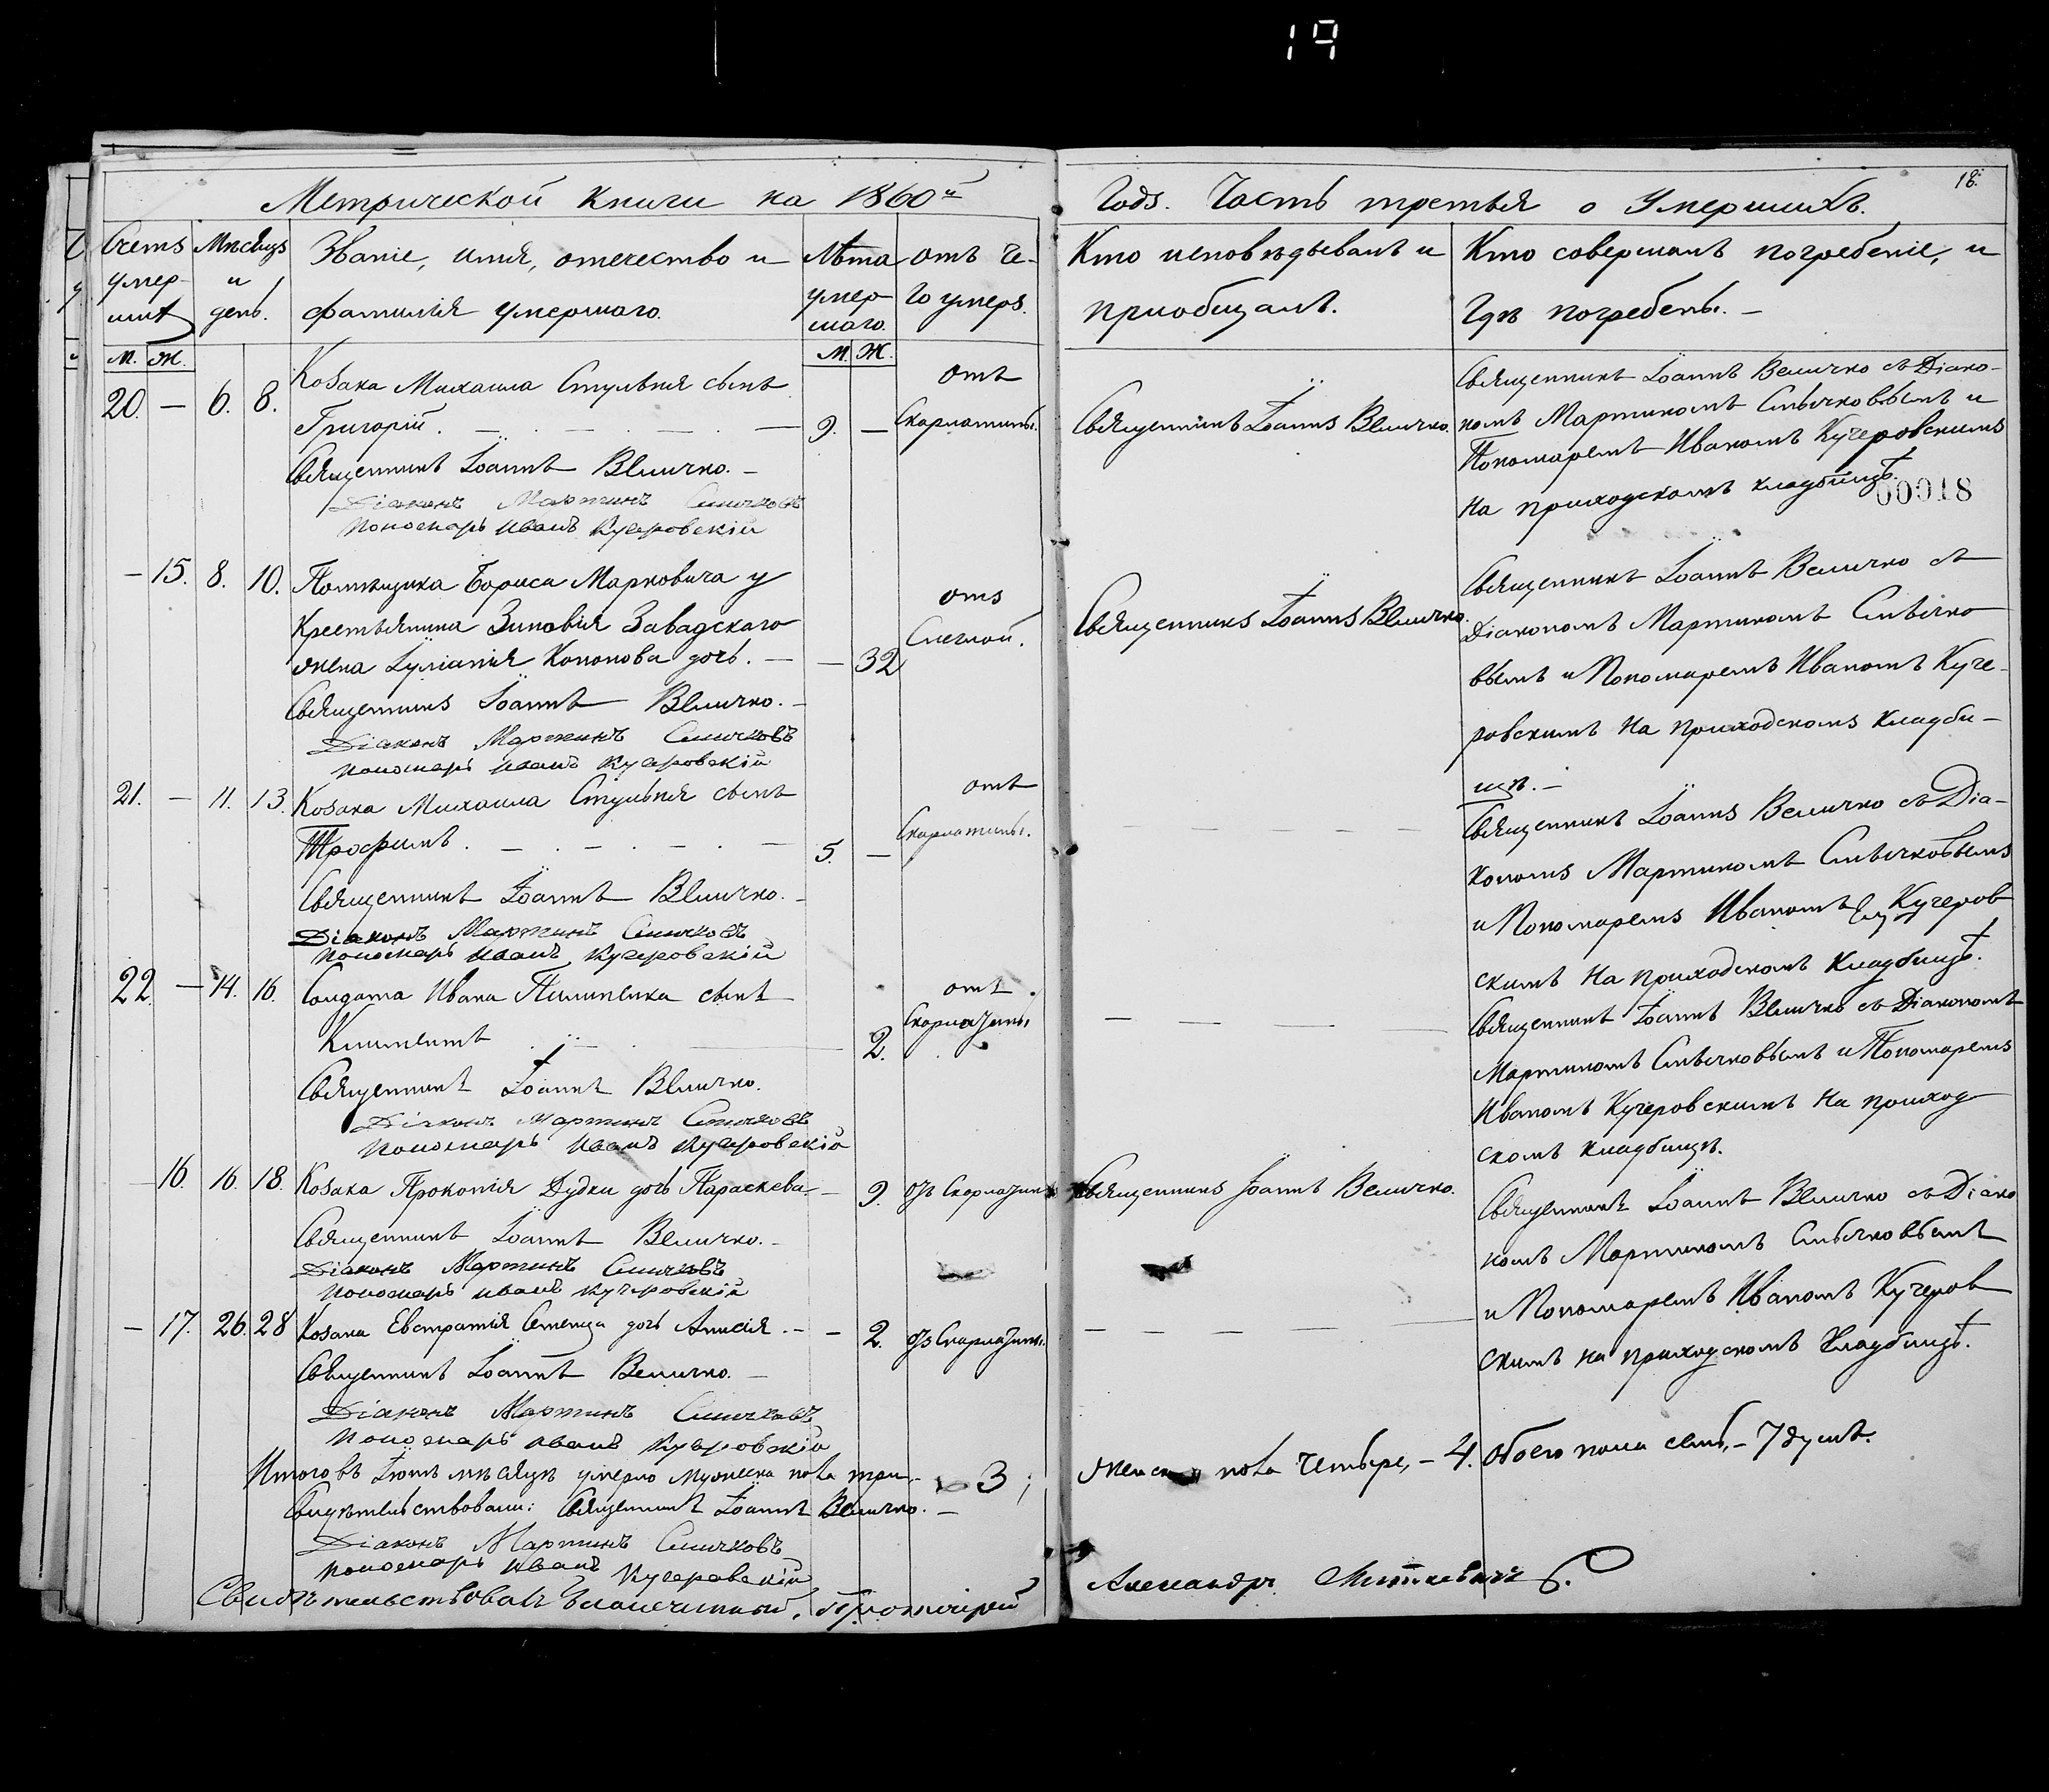 19
18.
Метрической книги на 1860й
Годъ. Часть третья о Умершихъ.
Счетъ умершихъ
Месяцъ и день.
Званіе, имя, отечество и
фамилія умершаго.
Лѣта умершаго.
отъ чего умеръ.
Кто исповѣдывалъ и
пріобщалъ.
Кто совершалъ погребеніе, и
гдѣ погребены. –
м. ж.
м. ж.
20. – 6. 8. Козака Михаила Стулѣня сынъ
Григорій. – 9. – отъ
Скарлатины.
Священникъ Іоаннъ Величко. –
Діаконъ Мартинъ Сличковъ
Пономарь Иванъ Кучеровскій
Священникъ Іоаннъ Величко.
Священникъ Іоаннъ Величко съ Діако-
номъ Мартиномъ Слѣчковымъ и
Пономаремъ Иваномъ Кучеровскимъ
на приходскомъ кладбищѣ.
00018
– 15. 8. 10. Помѣщика Бориса Марковича у
Крестьянина Зиновія Завадскаго
жена Іуліанія Кононова дочь. – – 32
отъ
Священникъ Іоаннъ Величко. –
Діаконъ Мартинъ Сличковъ
Пономарь Иванъ Кучеровскій
Священникъ Іоаннъ Величко.
Священникъ Іоаннъ Величко съ
Діакономъ Мартиномъ Слѣчко
вымъ и Пономаремъ Иваномъ Куче-
ровскимъ на приходскомъ кладби-
щѣ. –
21. – 11. 13. Козака Михаила Стулѣня сынъ
Трофимъ. – 5. – отъ
Скарлатины.
Священникъ Іоаннъ Величко. –
Діаконъ Мартинъ Сличковъ
Пономарь Иванъ Кучеровскій
Священникъ Іоаннъ Величко съ Діа-
кономъ Мартиномъ Слѣчковымъ
и Пономаремъ Иваномъ Кучеров
скимъ на приходскомъ кладбищѣ.
22. – 14. 16. Солдата Ивана Пилипенка сынъ
Климентъ 2. отъ
Скарлатины
Священникъ Іоаннъ Величко.
Діаконъ Мартинъ Сличковъ
Пономарь Иванъ Кучеровскій
Священникъ Іоаннъ Величко съ Діакономъ
Мартиномъ Слѣчковымъ и Пономаремъ
Иваномъ Кучеровскимъ на приход
скомъ кладбищѣ.
– 16. 16. 18. Козака Прокопія Дудки дочь Параскева – 9. отъ Скарлатины
Священникъ Іоаннъ Величко. –
Діаконъ Мартинъ Сличковъ
Пономарь Иванъ Кучеровскій
Священникъ Іоаннъ Величко.
Священникъ Іоаннъ Величко съ Діако
номъ Мартиномъ Слѣчковымъ
и Пономаремъ Иваномъ Кучеров
скимъ на приходскомъ кладбищѣ.
– 17. 26. 28 Козака Евстратія дочь Анисія. – – 2. отъ Скарлатины.
Священникъ Іоаннъ Величко. –
Діаконъ Мартинъ Сличковъ
Пономарь Иванъ Кучеровскій
Итого въ Іюнѣ мѣсяцѣ умерло мужеска пола три, – 3;
женска пола четыре, – 4. Обоего пола семь, – 7 душъ.
Свидѣтельствовали: Священникъ Іоаннъ Величко. –
Діаконъ Мартинъ Сличковъ
Пономарь Иванъ Кучеровскій
Свидѣтельствовалъ Благочинный, Протоіерей
Александръ